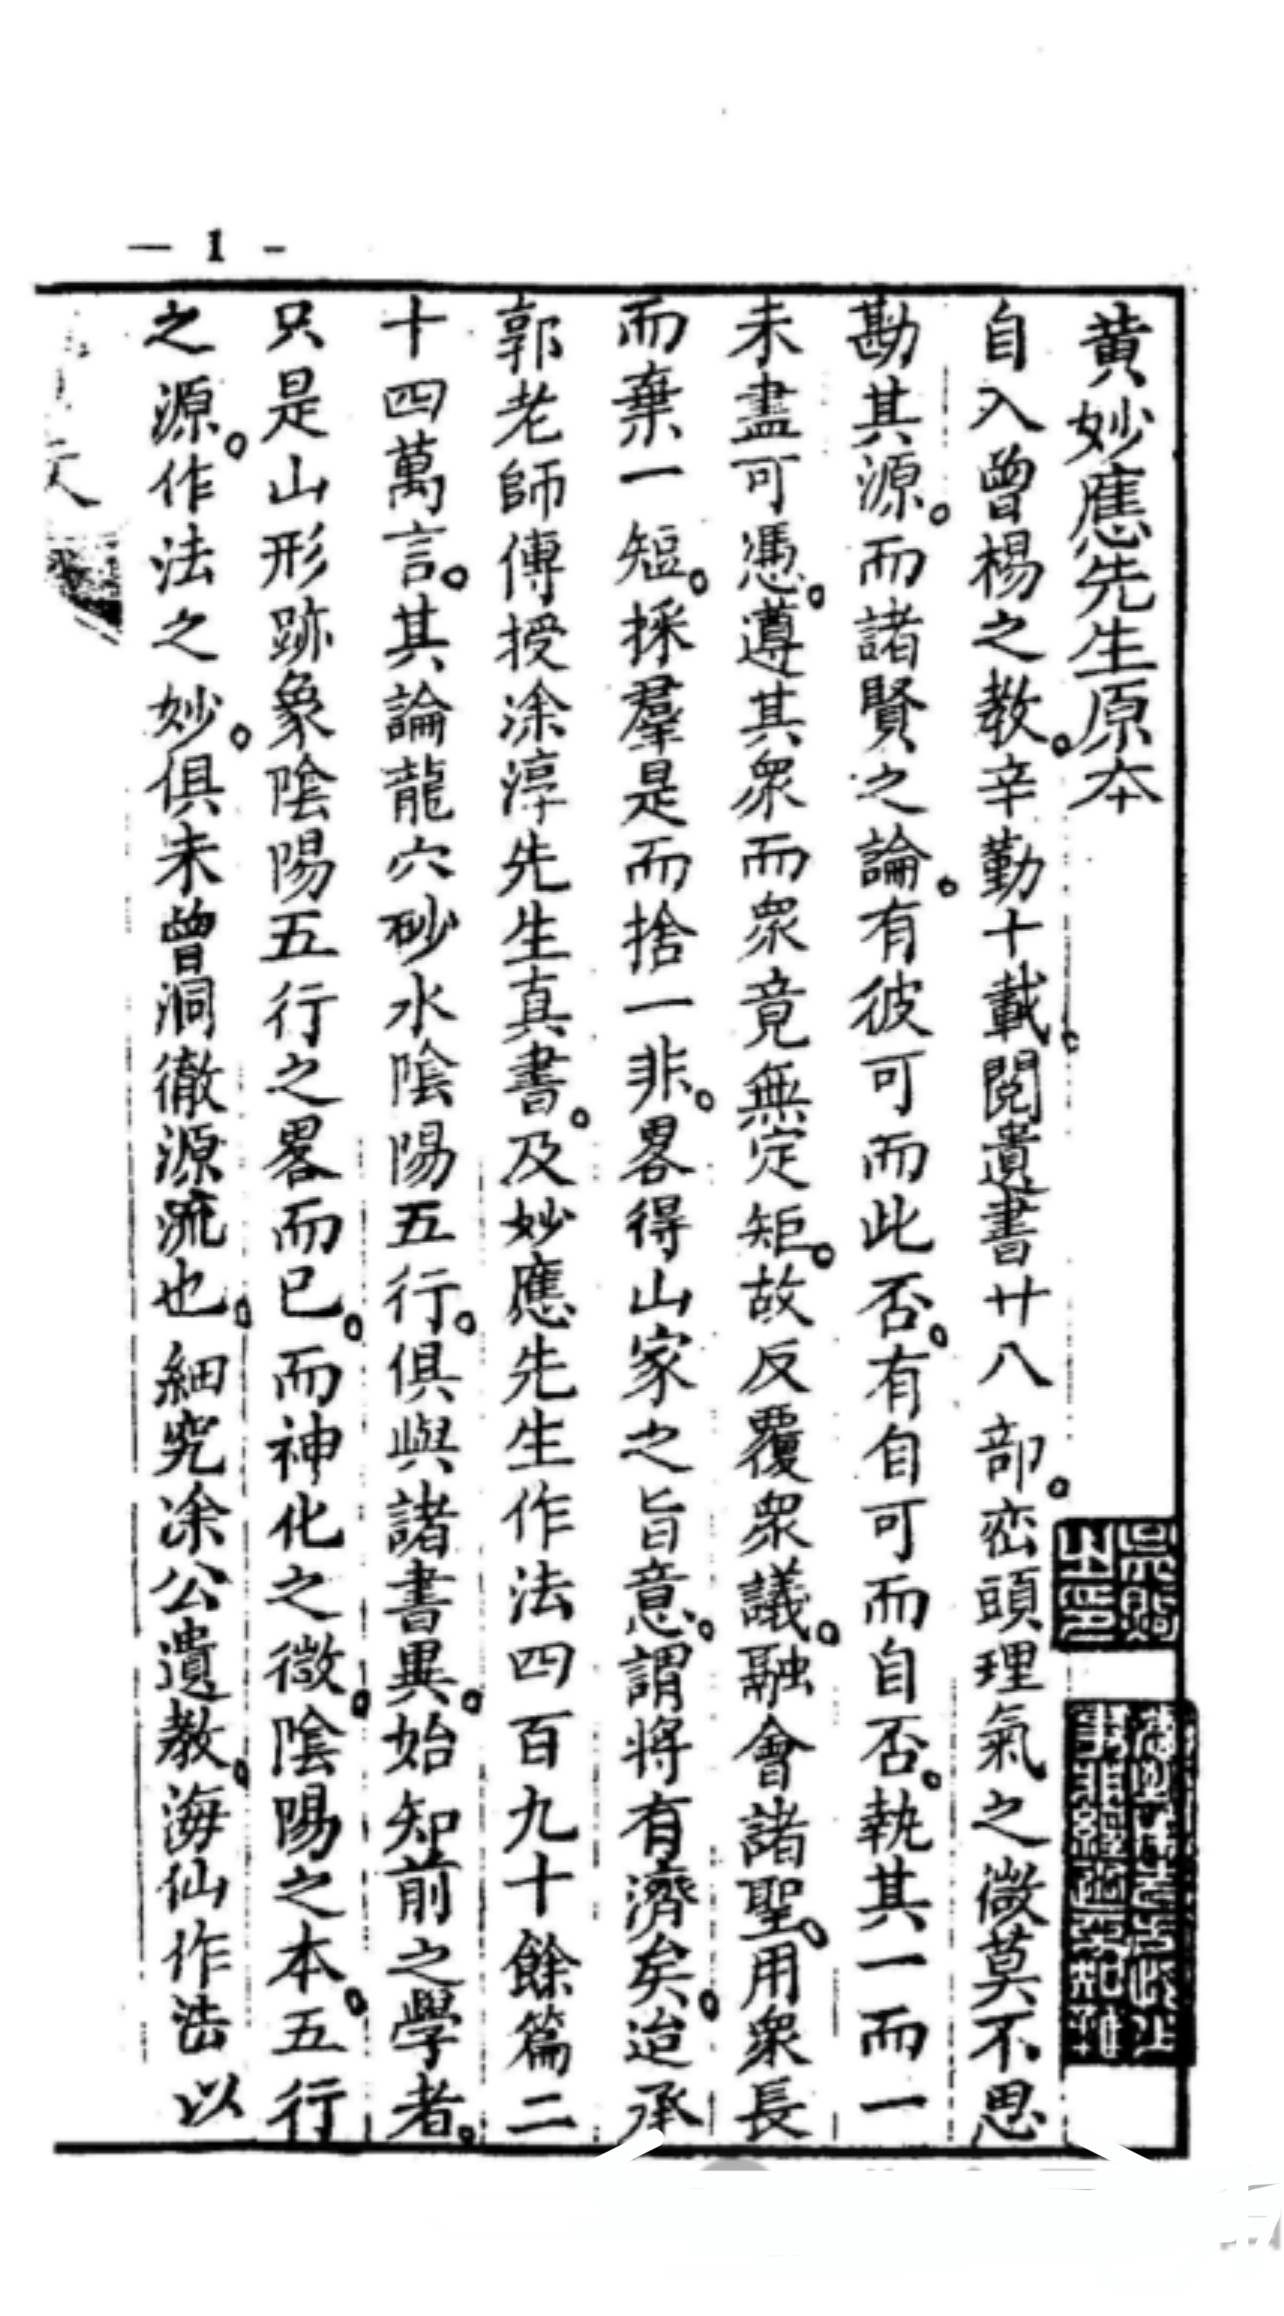 — 1 -
黃妙應先生原本
自入曾楊之教。辛勤十載。閱遺書廿八部。巒頭理氣之微莫不思
勘其源。而諸賢之論。有彼可而此否。有自可而自否。執其一而一
未盡可憑。遵其眾而眾竟無定矩。故反覆眾議。融會諸聖。用眾長
而棄一短。採羣是而捨一非。畧得山家之旨意。謂將有濟矣。迨承
郭老師傳授涂淳先生真書。及妙應先生作法四百九十餘篇二
十四萬言。其論龍穴砂水陰陽五行。俱與諸書異。始知前之學者。
只是山形跡象陰陽五行之畧而已。而神化之微。陰陽之本。五行
之源。作法之妙。俱未曾洞徹源流也。細究涂公遺教。海仙作法以